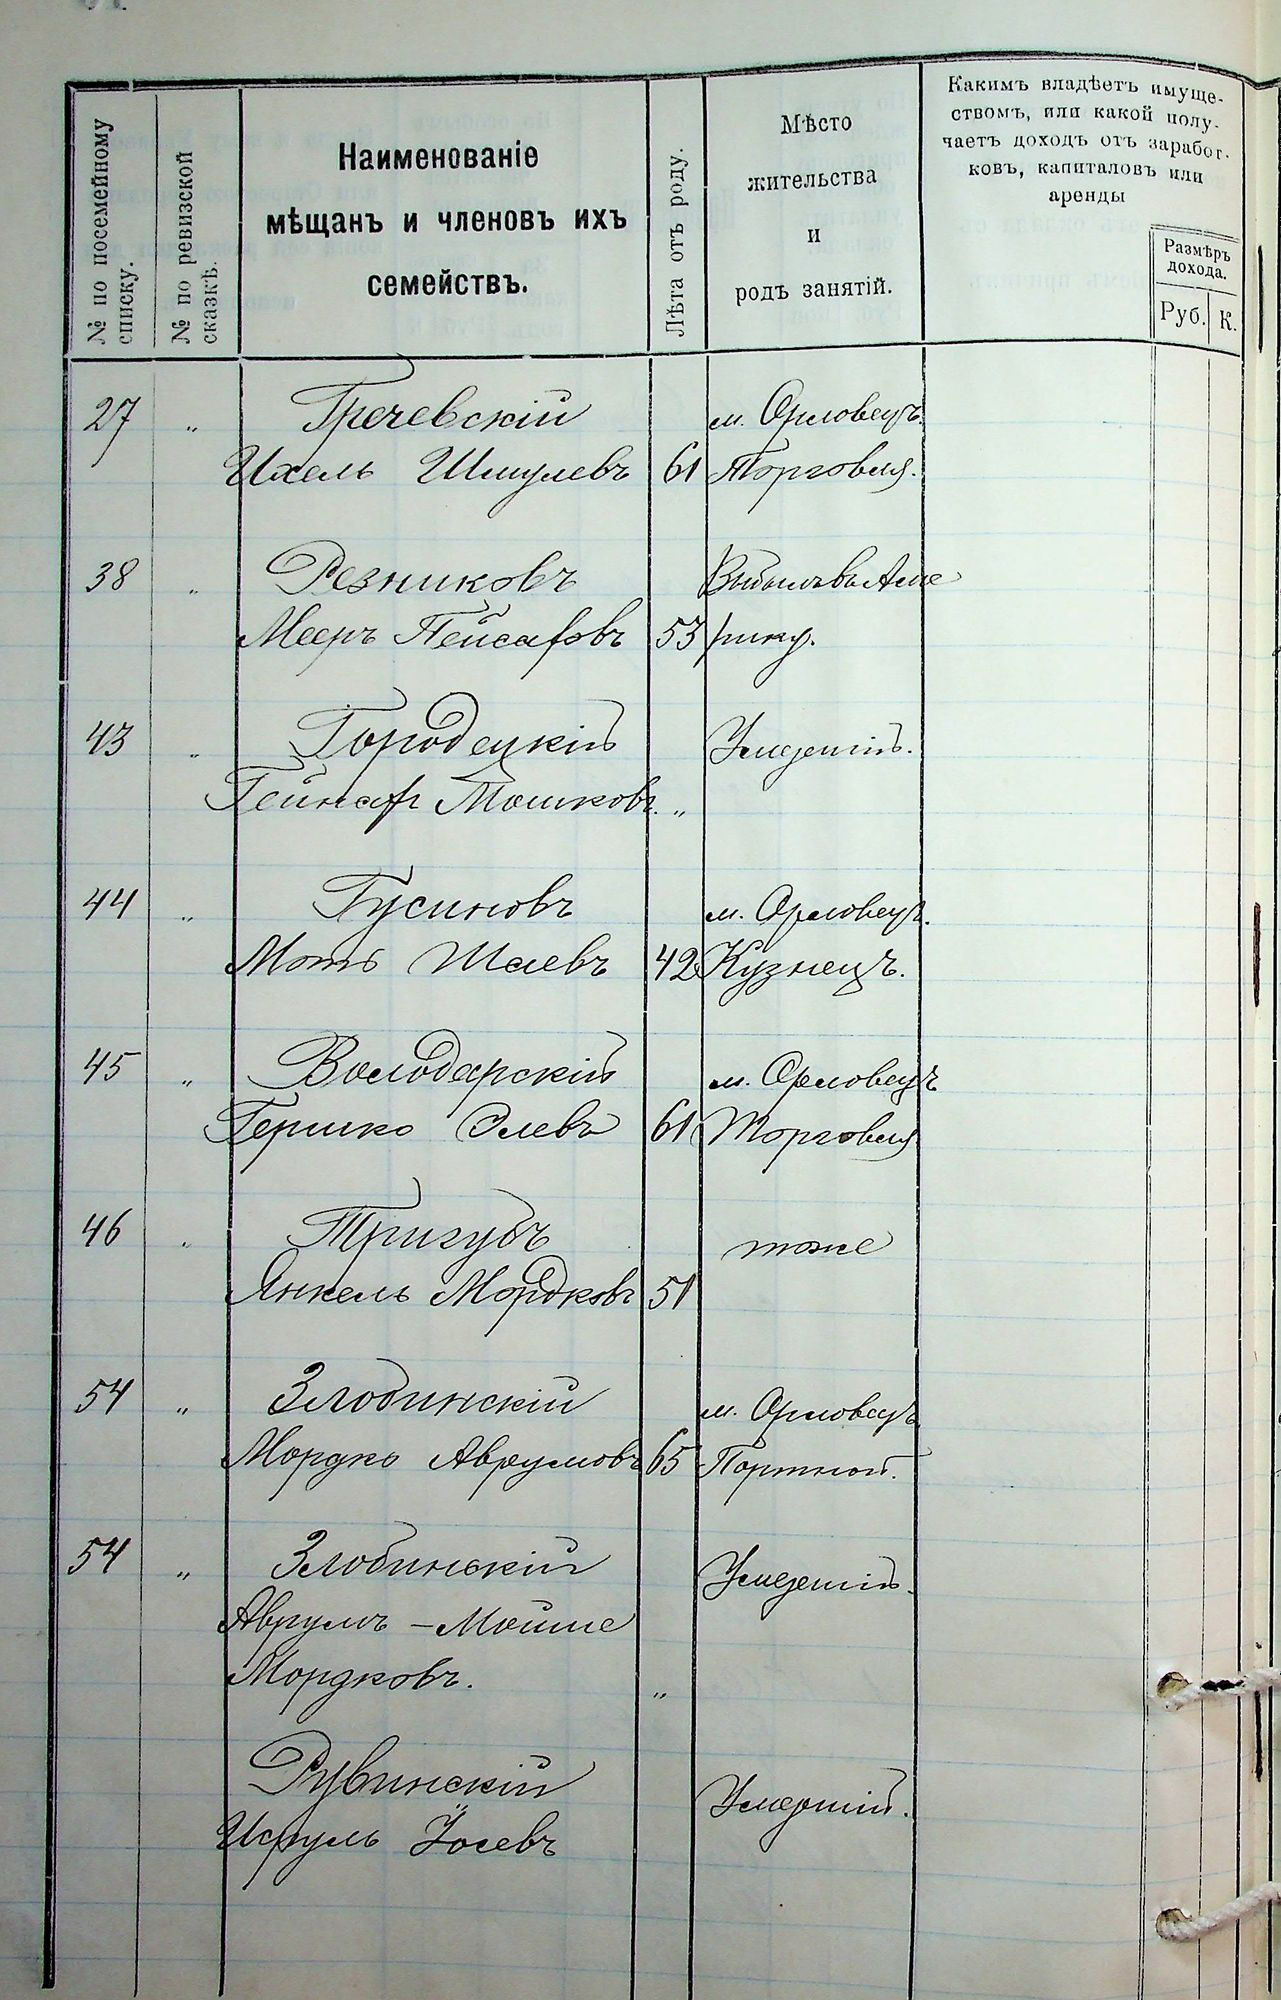 № по посемейному
списку.
№ по ревизской
сказкѣ.
Наименованіе
мѣщанъ и членовъ ихъ
семействъ.
Лѣта отъ роду.
Мѣсто
жительства
и
родъ занятій.
Какимъ владѣетъ имуще-
ствомъ, или какой полу-
чаетъ доходъ отъ заработ-
ковъ, капиталовъ или
аренды
Размѣръ
дохода.
Руб. К.
27 „ Гречевскій м. Орловецъ.
Ихель Шмулевъ 61 Торговля.
38 „ Резниковъ Выбылъ въ Аме
Мееръ Пейсаховъ 53 рику.
43 „ Городецкій Умершій.
Гейнах Мошковъ. „
44 „ Гусиновъ м. Орловецъ.
Моть Шаевъ 42 Кузнецъ.
45 „ Володарскій м. Орловецъ
Гершко Элевъ 61 Торговля
46 „ Тригубъ тоже
Янкель Мордковъ 51
54 „ Злобинскій м. Орловецъ
Мордко Аврумовъ 65 Портной.
54 „ Злобинскій Умершій.
Аврумъ - Мойше
Мордковъ. „
Рувинскій Умершій.
Исруль Іосевъ